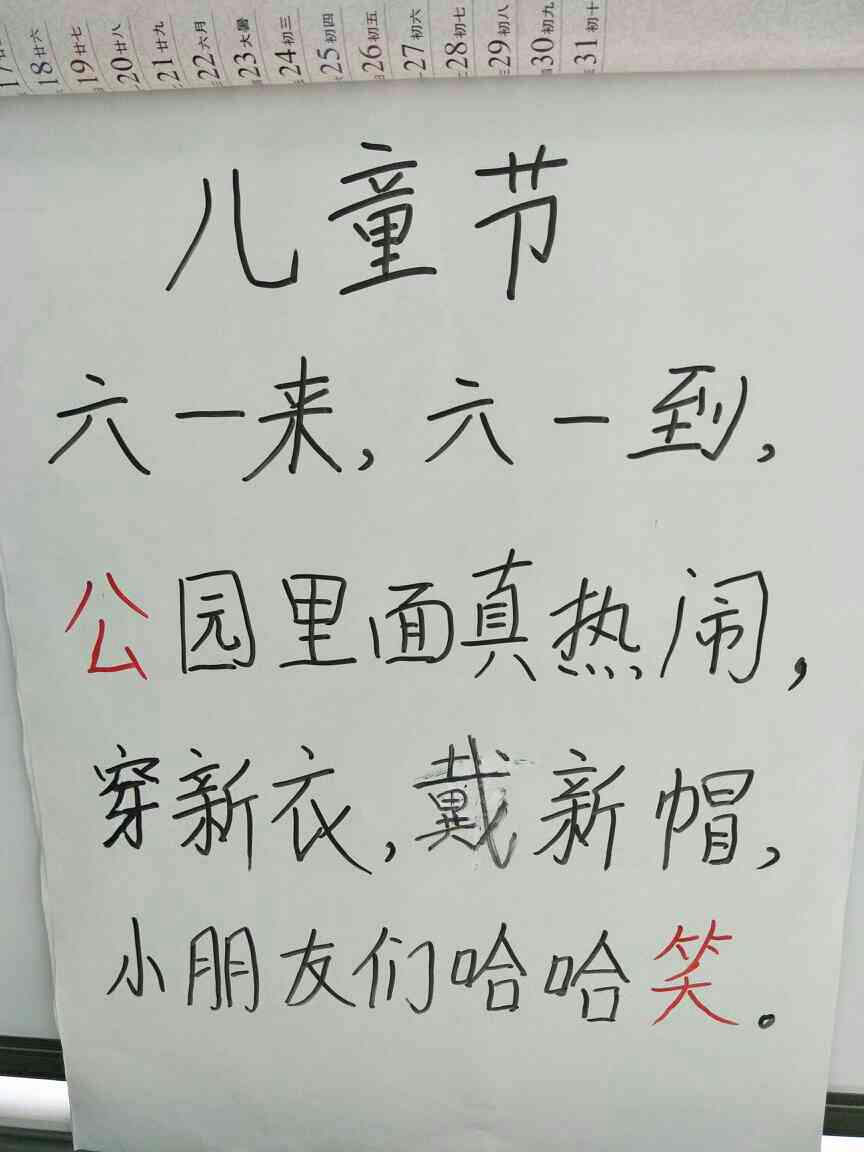 18 廿六
19 廿七
20 廿八
21 廿九
22 六月
23 大暑
24 初三
25 初四
26 初五
27 初六
28 初七
29 初八
30 初九
31 初十
儿童节
六一来,六一到,
公园里面真热闹,
穿新衣,戴新帽,
小朋友们哈哈笑。